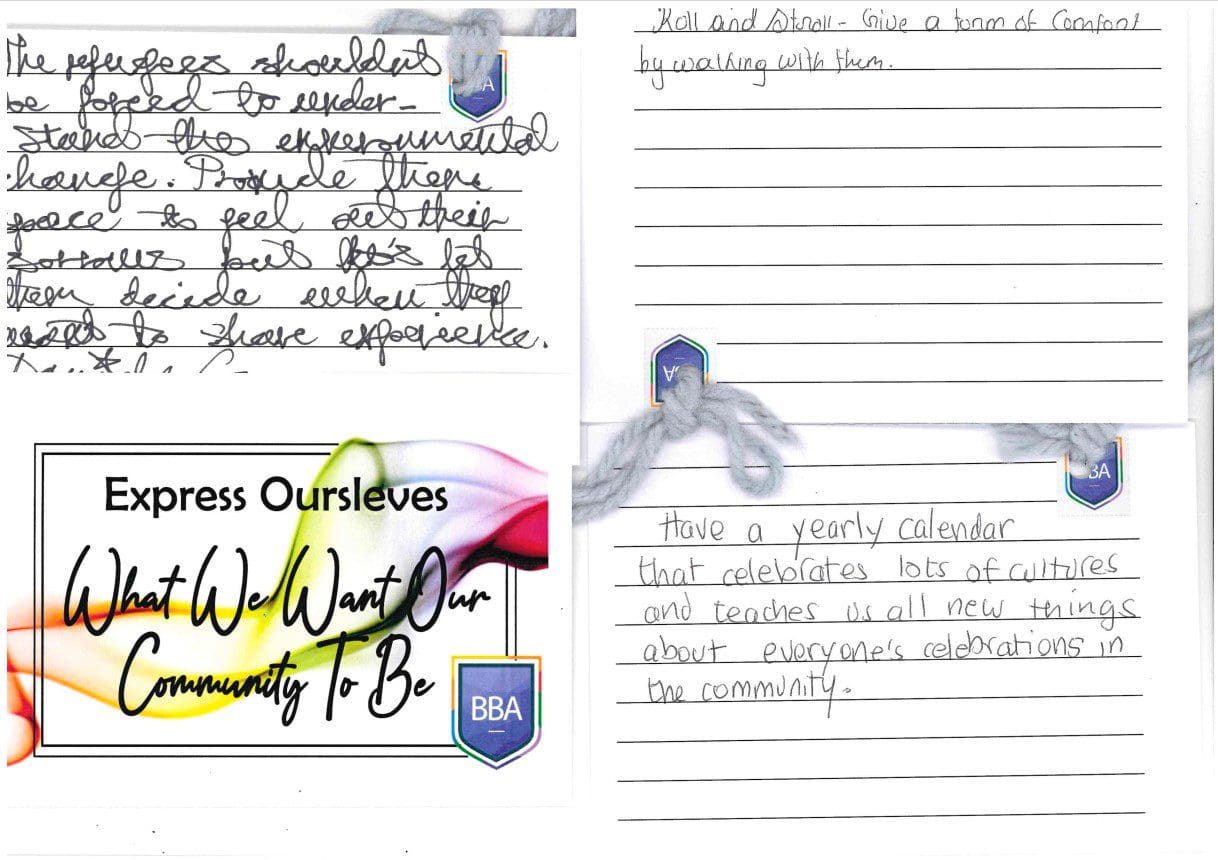 The refugees shouldn't
be forced to under-
stand the enviromental
change. Provide them
space to feel out their
sorrows but let's let
them decide when they
want to share experience.
BA
Roll and Stroll - Give a form of Comfort
by walking with them.
BA
Express Oursleves
What We Want Our
Community To Be
BBA
BA
Have a yearly calendar
that celebrates lots of cultures
and teaches us all new things
about everyone's celebrations in
the community.